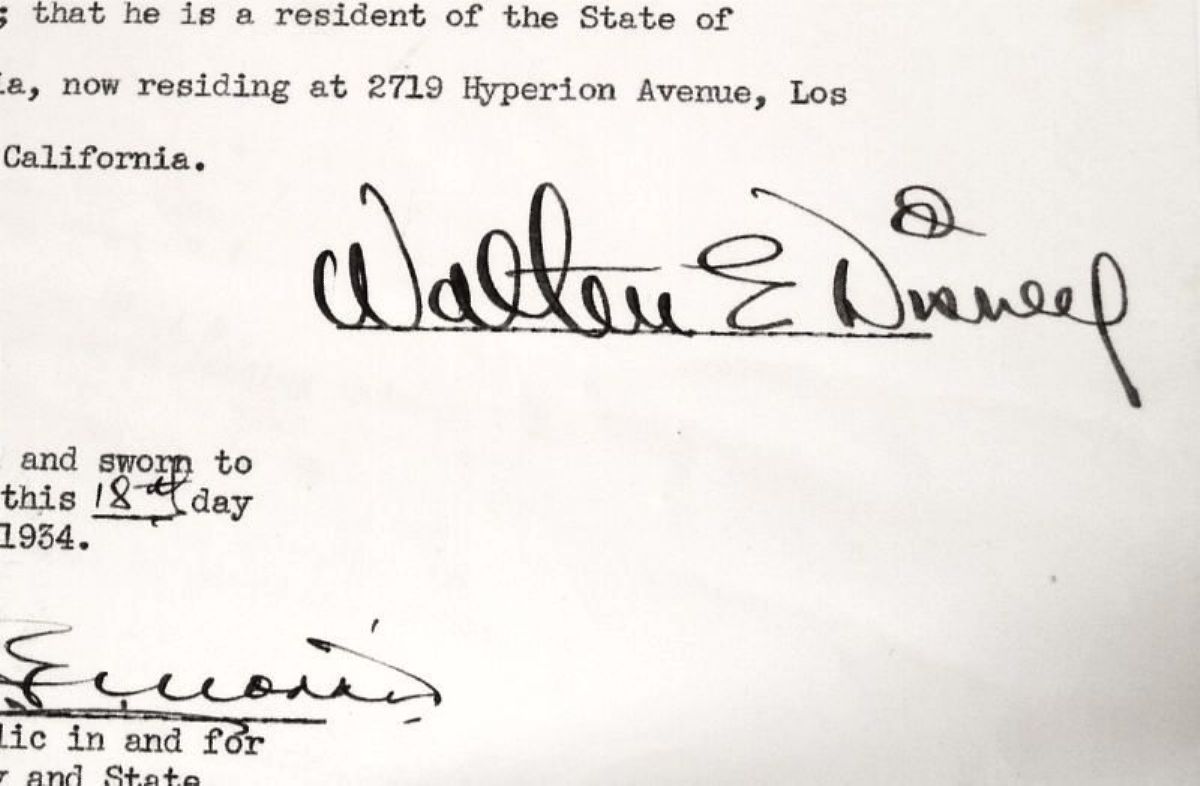 ; that he is a resident of the State of
ia, now residing at 2719 Hyperion Avenue, Los
California.
Walter E Disney
and sworn to
this 18th day
1934.
lic in and for
y and State